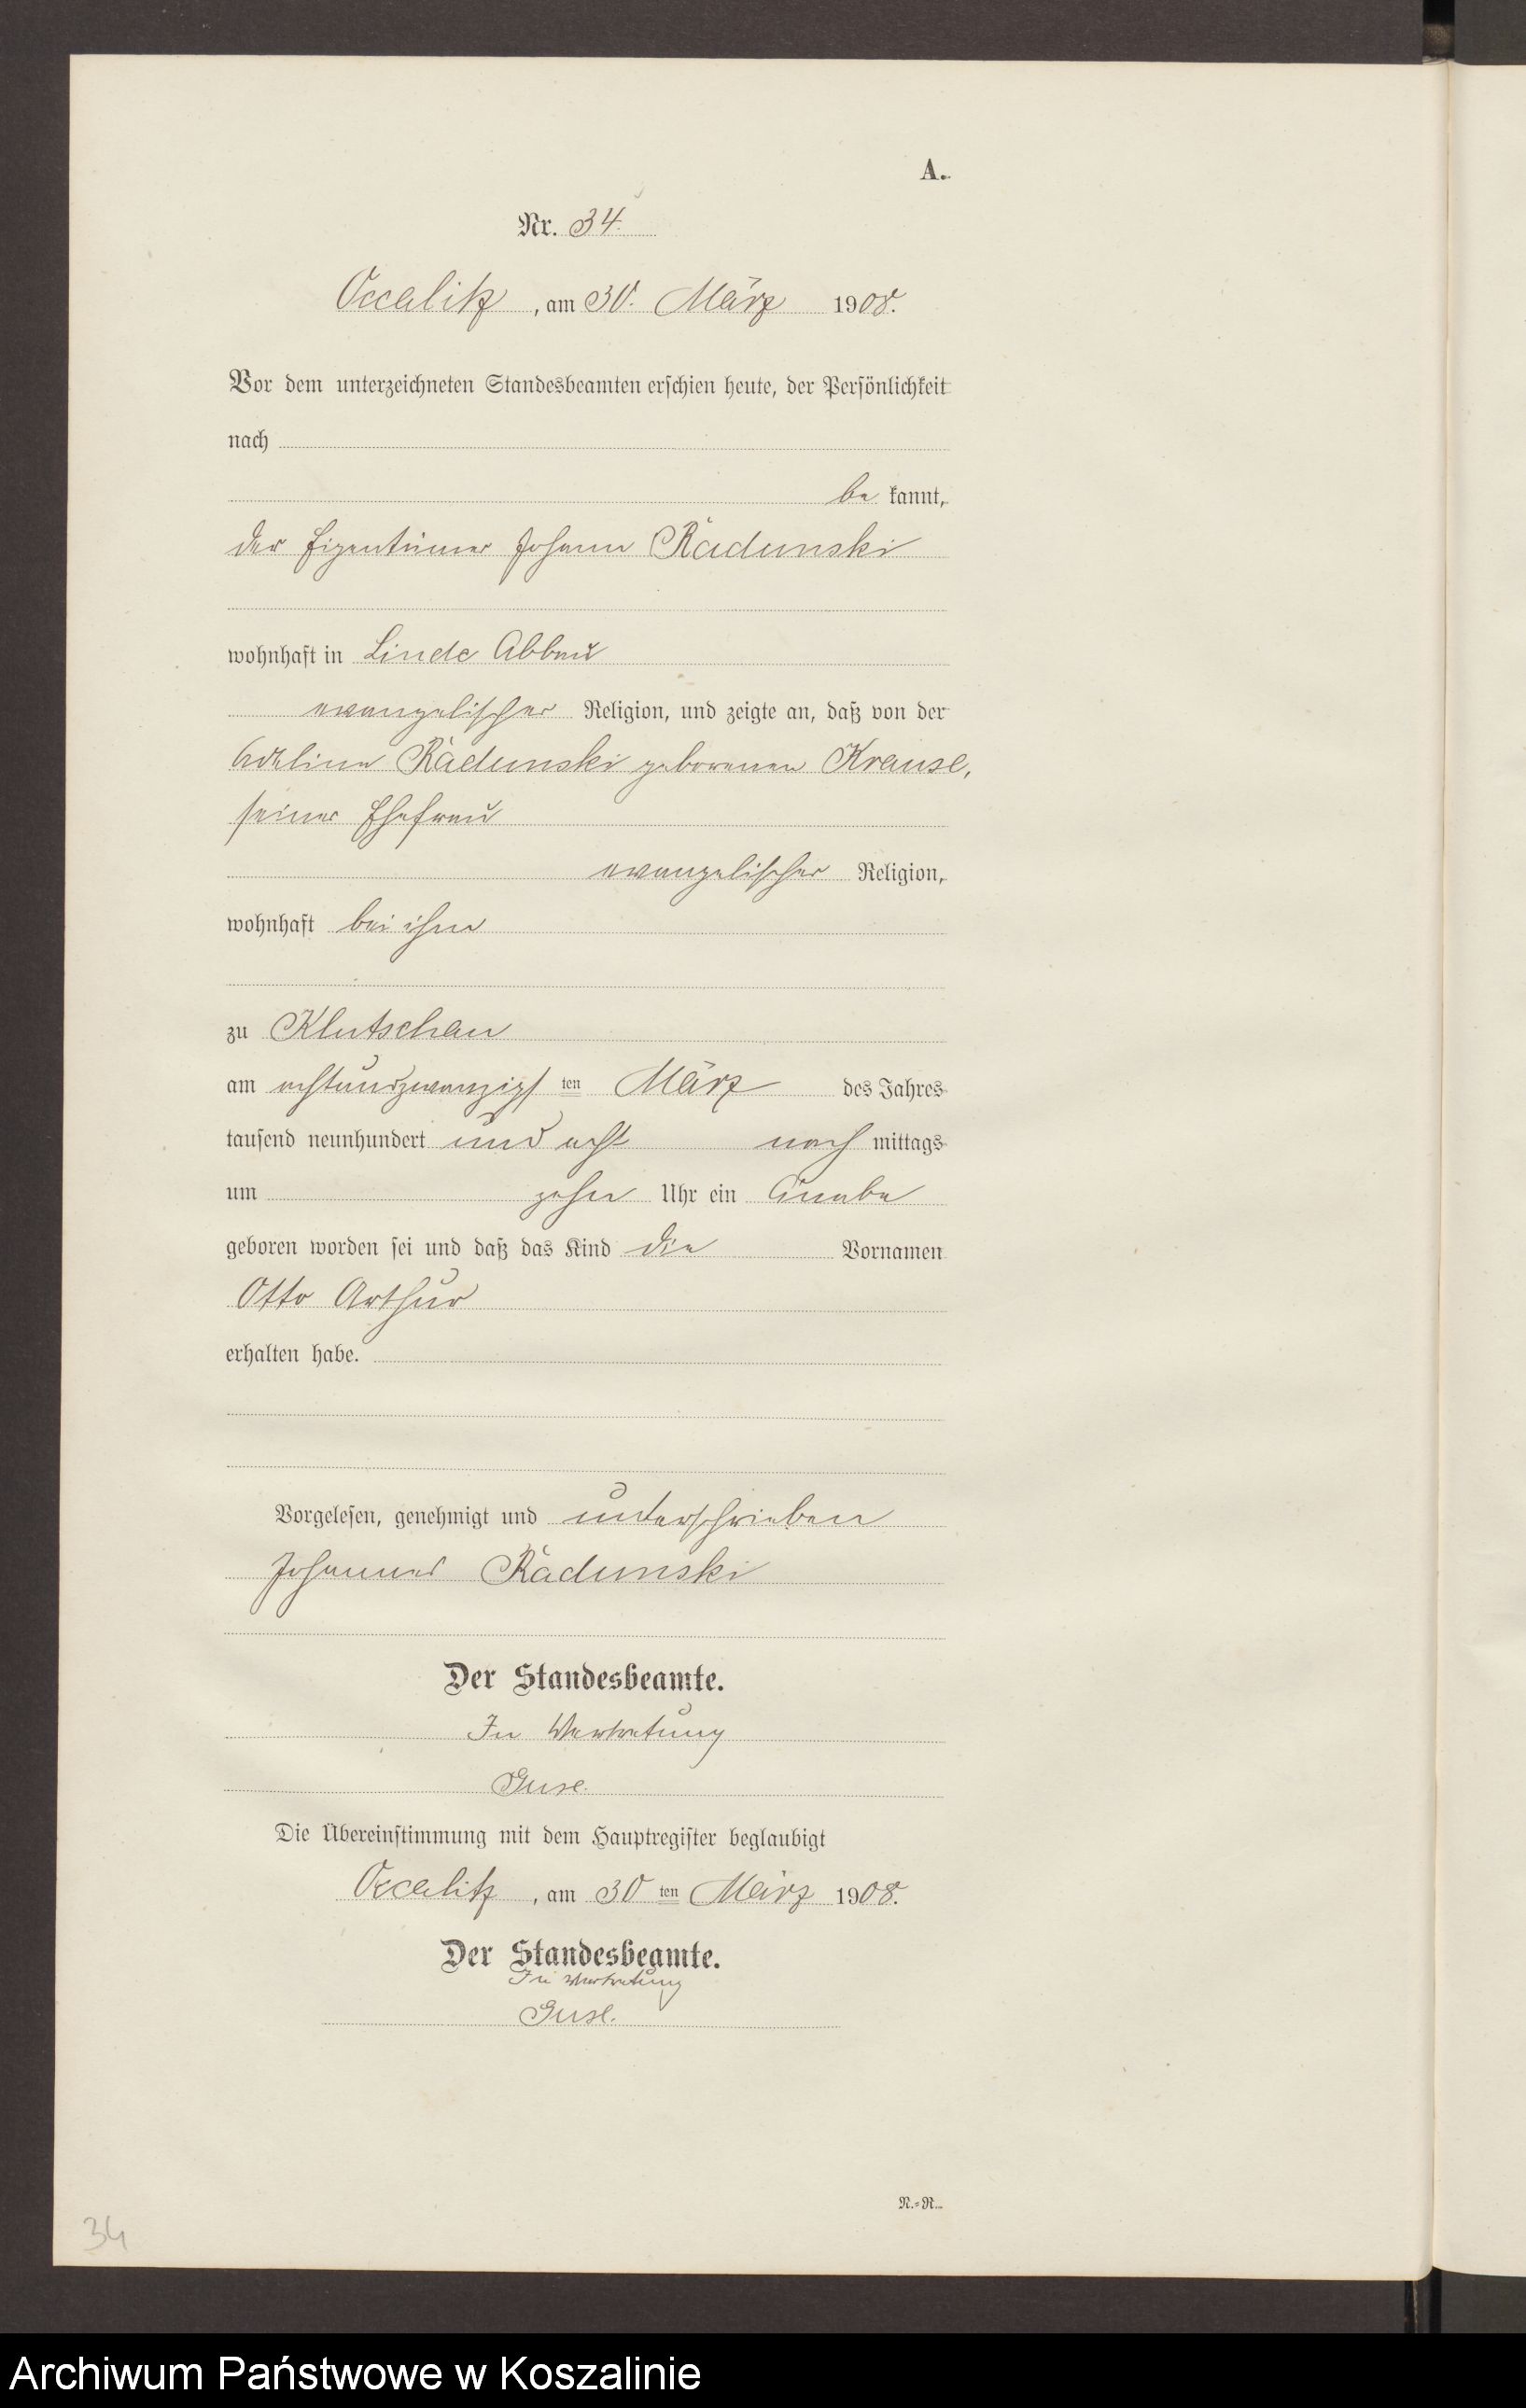 A.
Nr. 34.
Occalitz, am 30. März 1908.
Vor dem unterzeichneten Standesbeamten erschien heute, der Persönlichkeit
nach
be kannt,
der Eigentümer Johann Radunski
wohnhaft in Linde Abbau
evangelischer Religion, und zeigte an, daß von der
Adeline Radunski geborenen Krause,
seiner Ehefrau
evangelischer Religion,
wohnhaft bei ihm
zu Klutschau
am achtundzwanzigsten März des Jahres
tausend neunhundert und acht nach mittags
um zehn Uhr ein Knabe
geboren worden sei und daß das Kind die Vornamen
Otto Arthur
erhalten habe.
Vorgelesen, genehmigt und unterschrieben
Johannes Radunski
Der Standesbeamte.
In Vertretung
Guse.
Die Übereinstimmung mit dem Hauptregister beglaubigt
Occalitz, am 30 ten März 1908.
Der Standesbeamte.
In Vertretung
Guse.
N.=R.
34
Archiwum Państwowe w Koszalinie